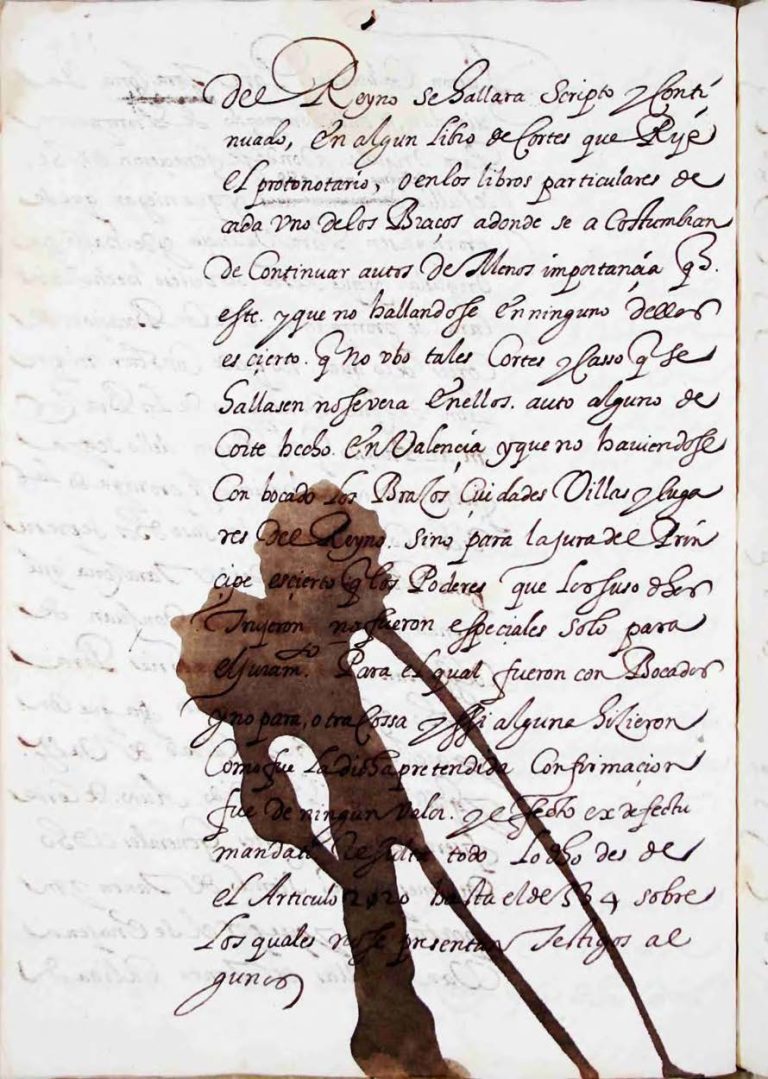 del Reyno se hallara scripto y Conti
nuado, En algun libro de Cortes que Rije
el protonotario, o en los libros particulares de
cada vno de los Bracos adonde se a Costumbran
de Continuar autos de Menos importancia q̃.
este. y que no hallandose En ninguno dellos
es cierto. q̃ No vbo tales Cortes y Casso q̃ se
hallasen no se vera En ellos. auto alguno de
Corte hecho. En Valencia y que no haviendose
Con bocado los Brazos Ciudades Villas y luga
res del Reyno. sino para la jura del Prin
cipe es cierto q̃ los Poderes que los suso dhos
Trujeron no fueron especiales solo para
el juramto. Para el qual fueron con Bocados
y no para, otra Cossa y si alguna hizieron
Como fue La dicha pretendida Confirmacion
fue de ningun valor. y efecto ex defectu
mandati Resulta todo lo dho des de
el Articulo hasta el de 534 sobre
Los quales no se presentan Testigos al
gunos